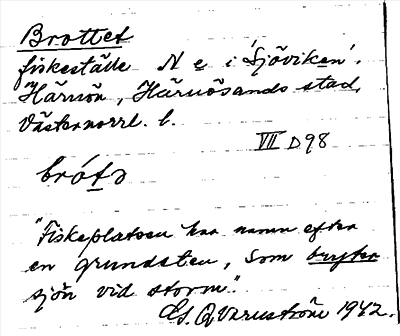 Brottet
fiskeställe N e i 'Sjöviken'.
Härnön, Härnösands stad,
Västernorrl. l.
VII D98
brótə
"Fiskeplatsen har namn efter
en grundsten, som bryter
sjön vid storm."
Gs. Qvarnström 1942.